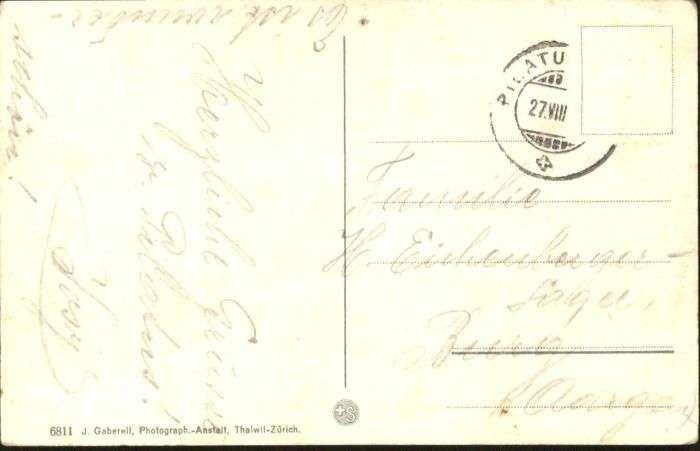 Herzliche Grüsse
v. Pilatus!
Es ist wunder-
schön!
Rosy
PILATU
27.VIII
Familie
H. Eichenberger-
Burg
Aargau
6811 J. Gaberell, Photograph.-Anstalt, Thalwil-Zürich.
+S